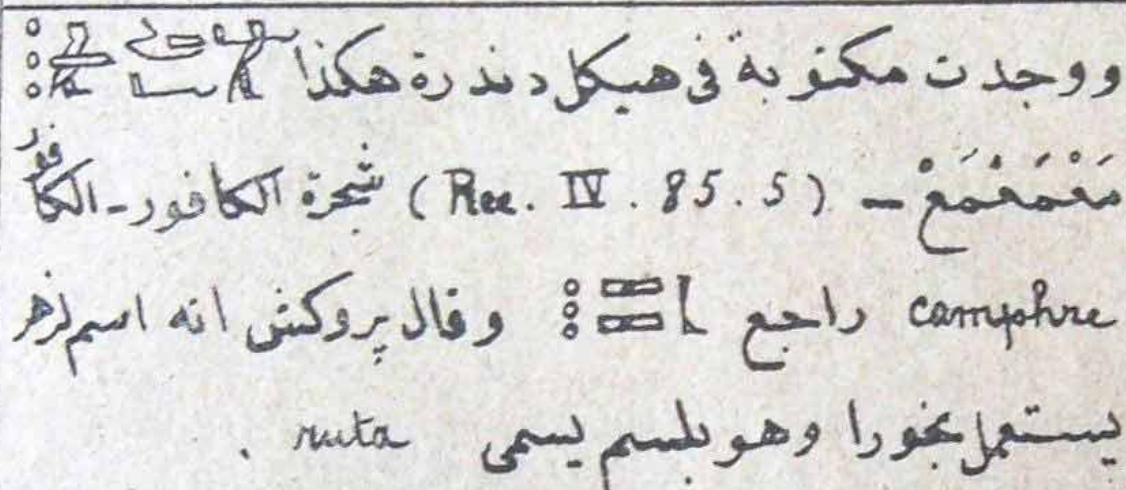 ووجدت مكتوبة فى هيكل دندرة هكذا
مَعْمَعْمَعْ - (Rec. IV. 85. 5) شجرة الكافور - الكافور
camphre راجع وقال بروكش انه اسم لزهر
يستعمل بخورا وهو بلسم يسمى ruta .